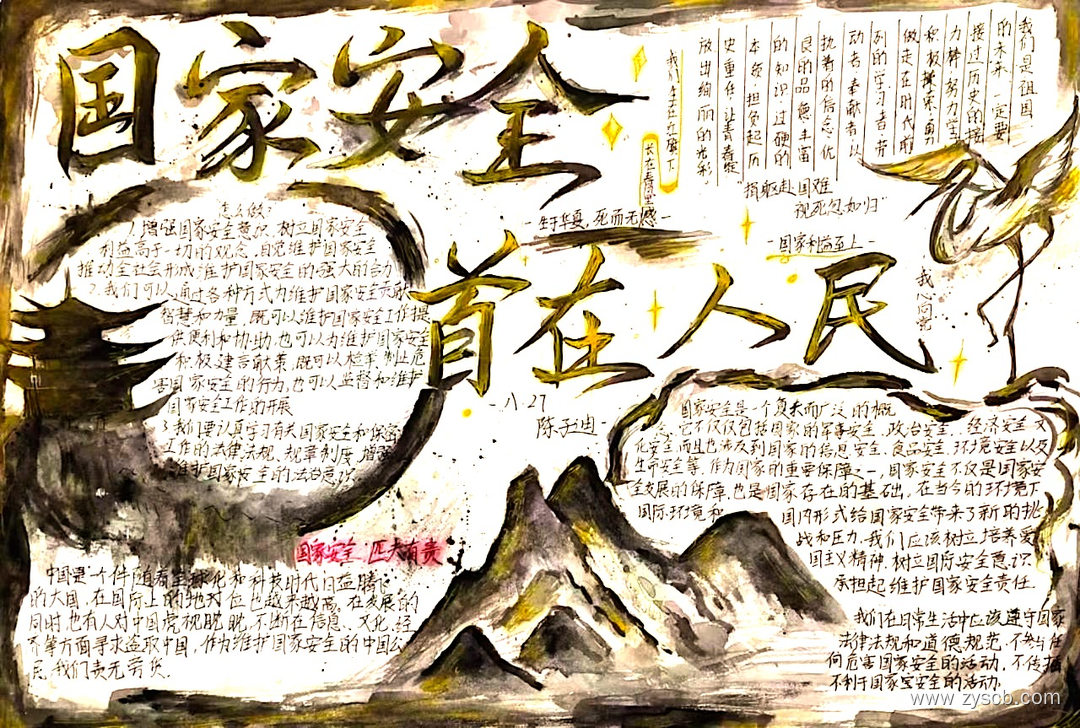 国家安全
首在人民
我们是祖国
的未来,一定要
接过历史的接
力棒,努力学
积极探索,勇
做走在时代前
列的学习者,劳
动者,奉献者,以
执着的信念,优
良的品德,丰富
的知识,过硬的
本领,担负起历
史重任,让青春绽
放出绚丽的光彩。
我们生在红旗下
长在春风里
"捐躯赴国难
视死忽如归"
-生于华夏,死而无憾-
-国家利益至上-
我心向党
怎么做:
1.增强国家安全意识,树立国家安全
利益高于一切的观念,自觉维护国家安全
推动全社会形成维护国家安全的强大的合力
2.我们可以通过各种方式为维护国家安全贡献
智慧和力量,既可以维护国家安全工作提
供便利和协助,也可以为维护国家安全
积极建言献策,既可以检举制止危
害国家安全的行为,也可以监督和维护
国家安全工作的开展
3.我们要认真学习有关国家安全和保密
工作的法律法规、规章制度,增强
维护国家安全的法治意识
-八.27
陈子迪
国家安全,匹夫有责
中国是一个伴随着全球化和科技时代日益腾飞
的大国,在国际上的地对位也越来越高。在发展的
同时,也有人对中国虎视眈眈,不断在信息、文化、经
济等方面寻求盗取中国,作为维护国家安全的中国公
民,我们责无旁贷。
国家安全是一个复杂而广泛的概
念,它不仅仅包括国家的军事安全,政治安全,经济安全,文
化安全,而且也涉及到国家的信息安全、食品安全,环境安全以及
生命安全等。作为国家的重要保障之一,国家安全不仅是国家安
全发展的保障,也是国家存在的基础。在当今的环境下
国际环境和 国内形式给国家安全带来了新的挑
战和压力,我们应该树立培养爱
国主义精神,树立国际安全意识,
承担起维护国家安全责任.
我们在日常生活中应该遵守国家
法律法规和道德规范,不参与任
何危害国家安全的活动,不传播
不利于国家安全的活动。
www.zyscb.com